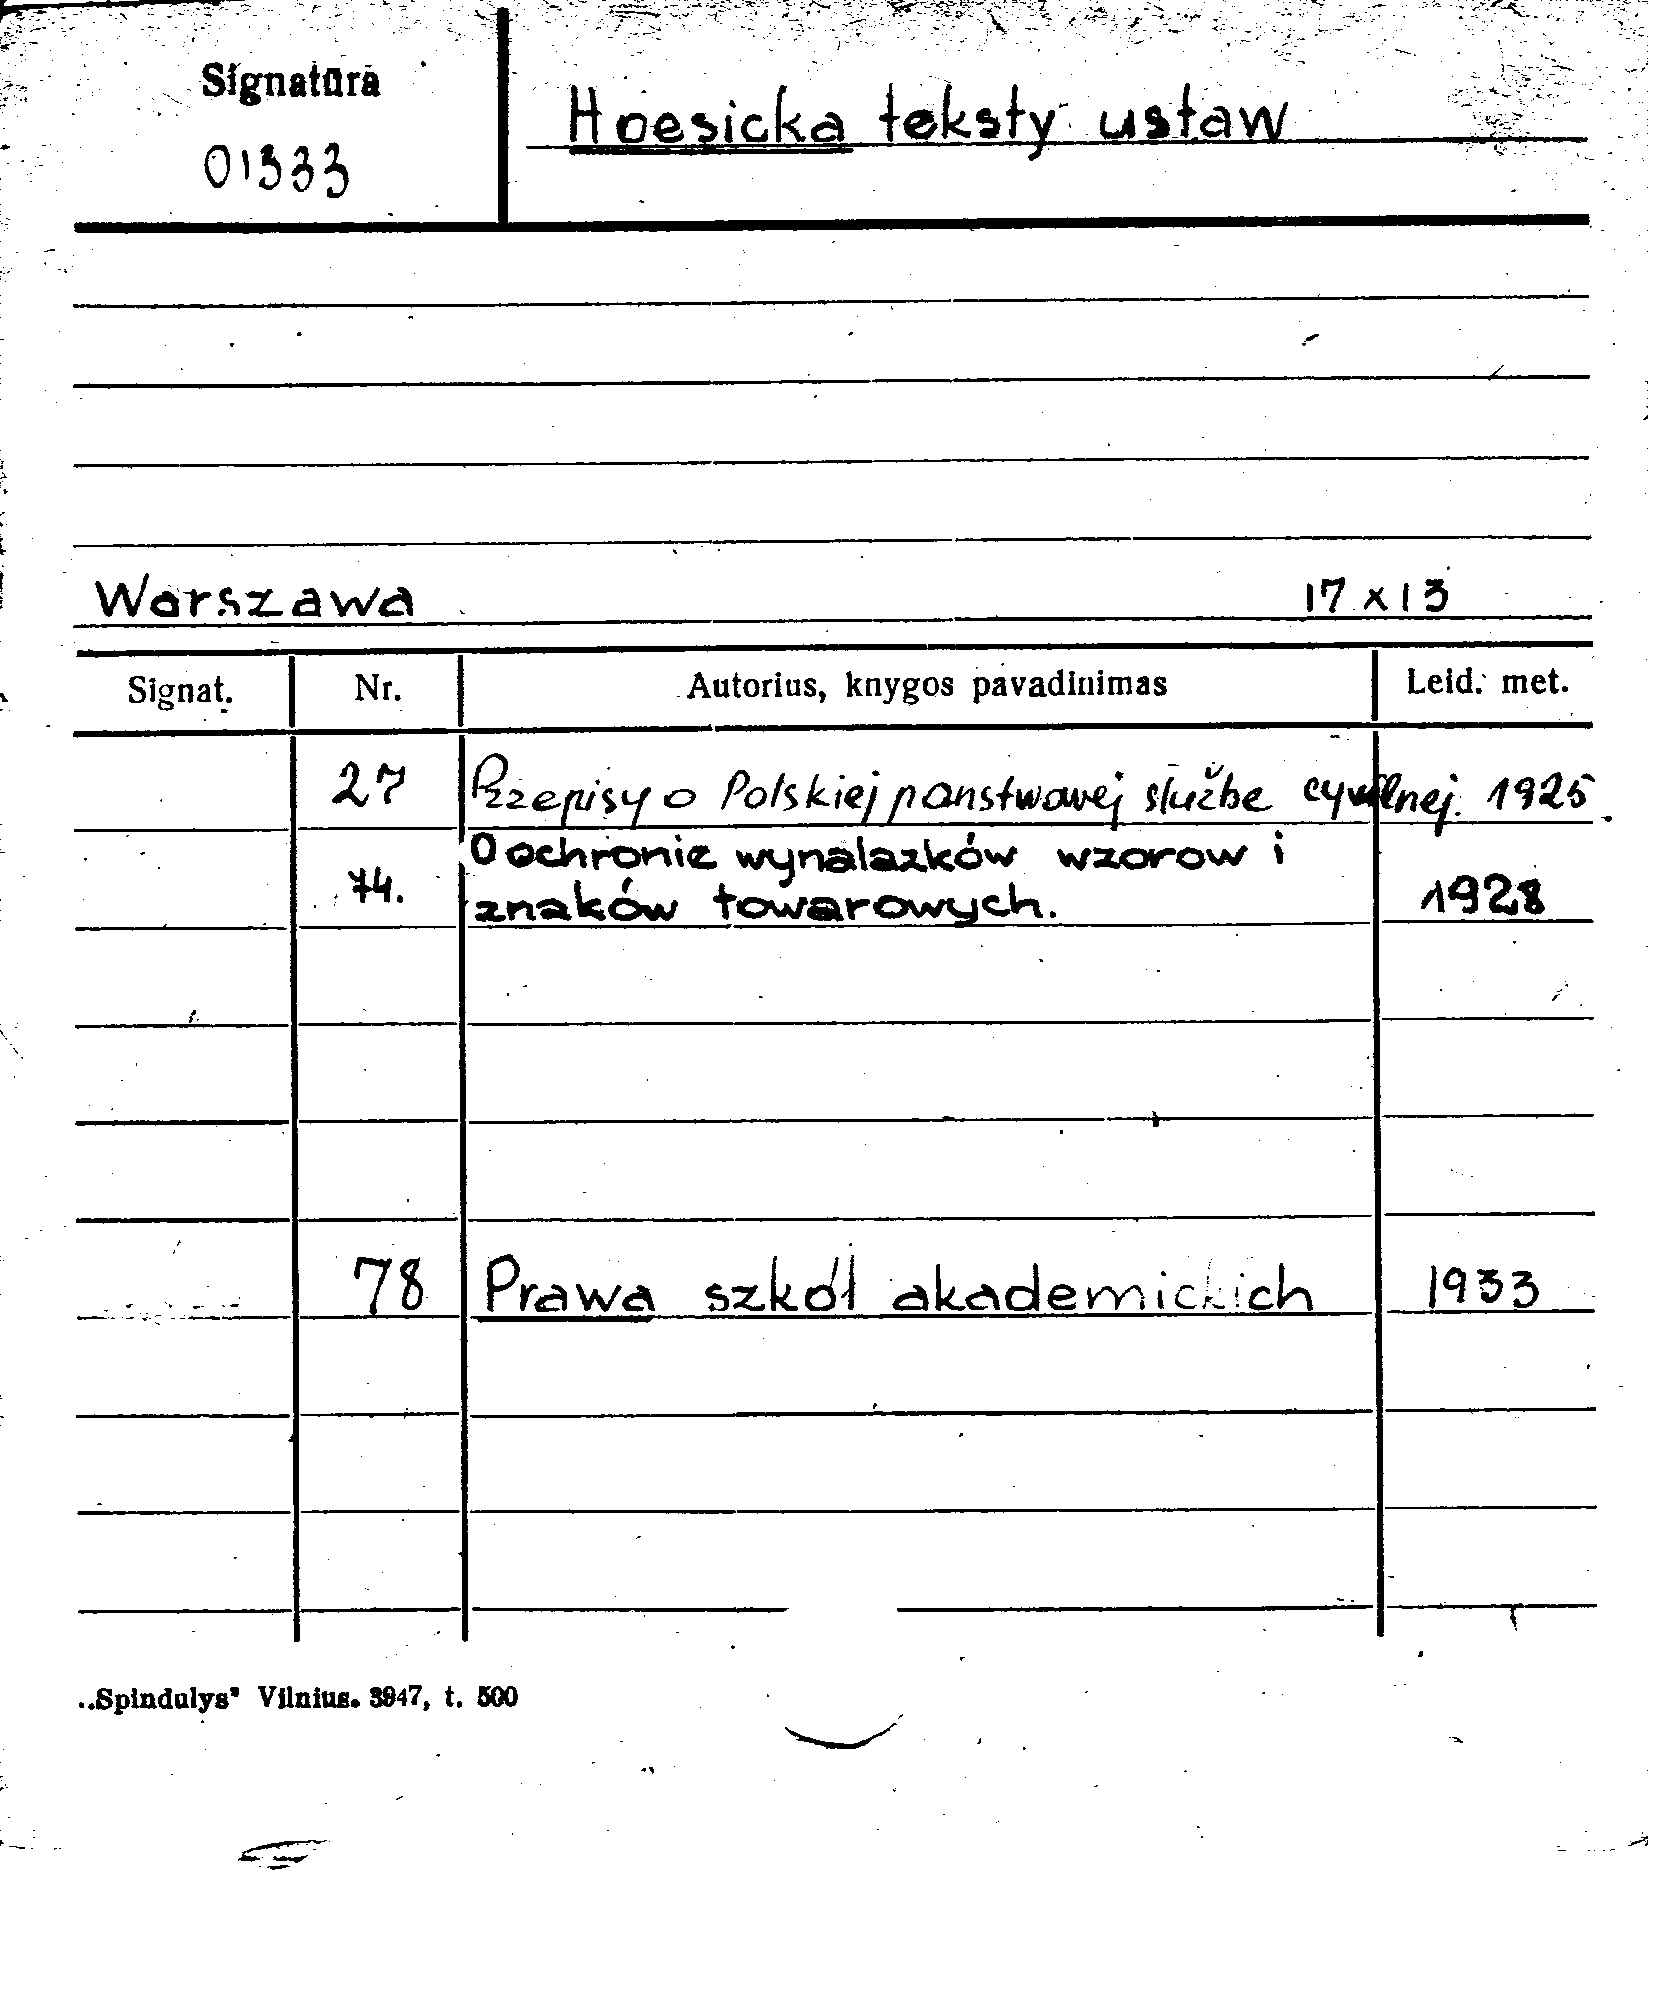 Signatūra
Hoesicka teksty ustaw
01333
Warszawa 17 x 13
Signat. Nr. Autorius, knygos pavadinimas Leid. met.
27 Przepisy o Polskiej panstwowej službe cywilnej. 1925
O ochronie wynalazków wzorow i
74. znaków towarowych. 1928
78 Prawa szkół akademickich 1933
„Spindulys" Vilnius. 3947, t. 500